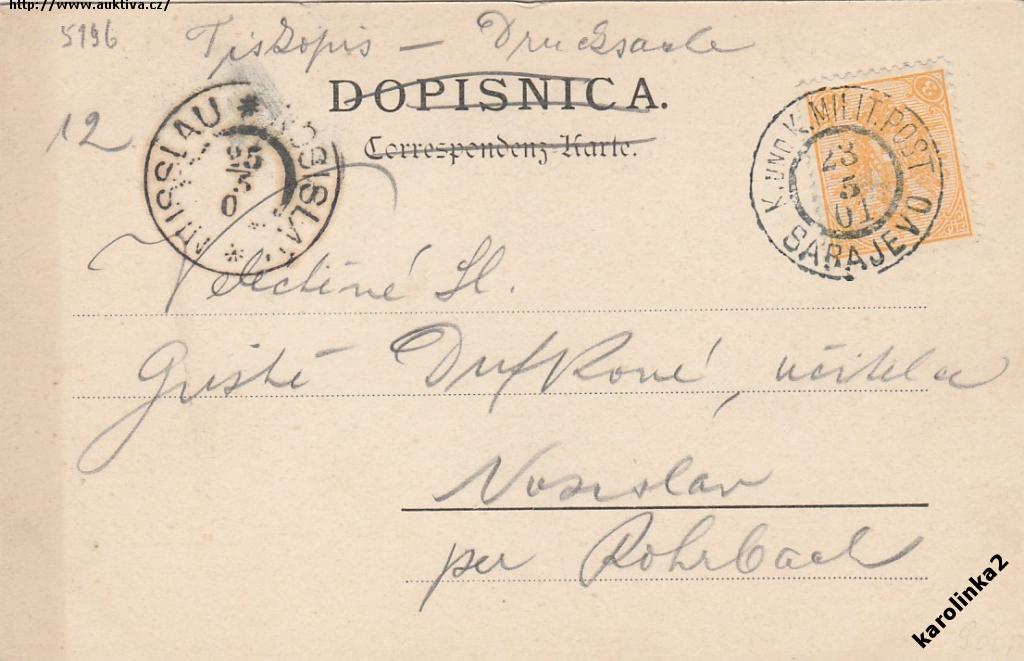 http://www.auktiva.cz/
5196
Tiskopis — Drucksache
DOPISNICA.
Correspondenz-Karte.
12
NOSISLAV * NUSSLAU *
25 5 0
K. UND K. MILIT. POST
23
5
01
SARAJEVO
3
Velectěné Sl.
Dufkové, učitelce
Nosislav
per Rohrbach
karolinka2